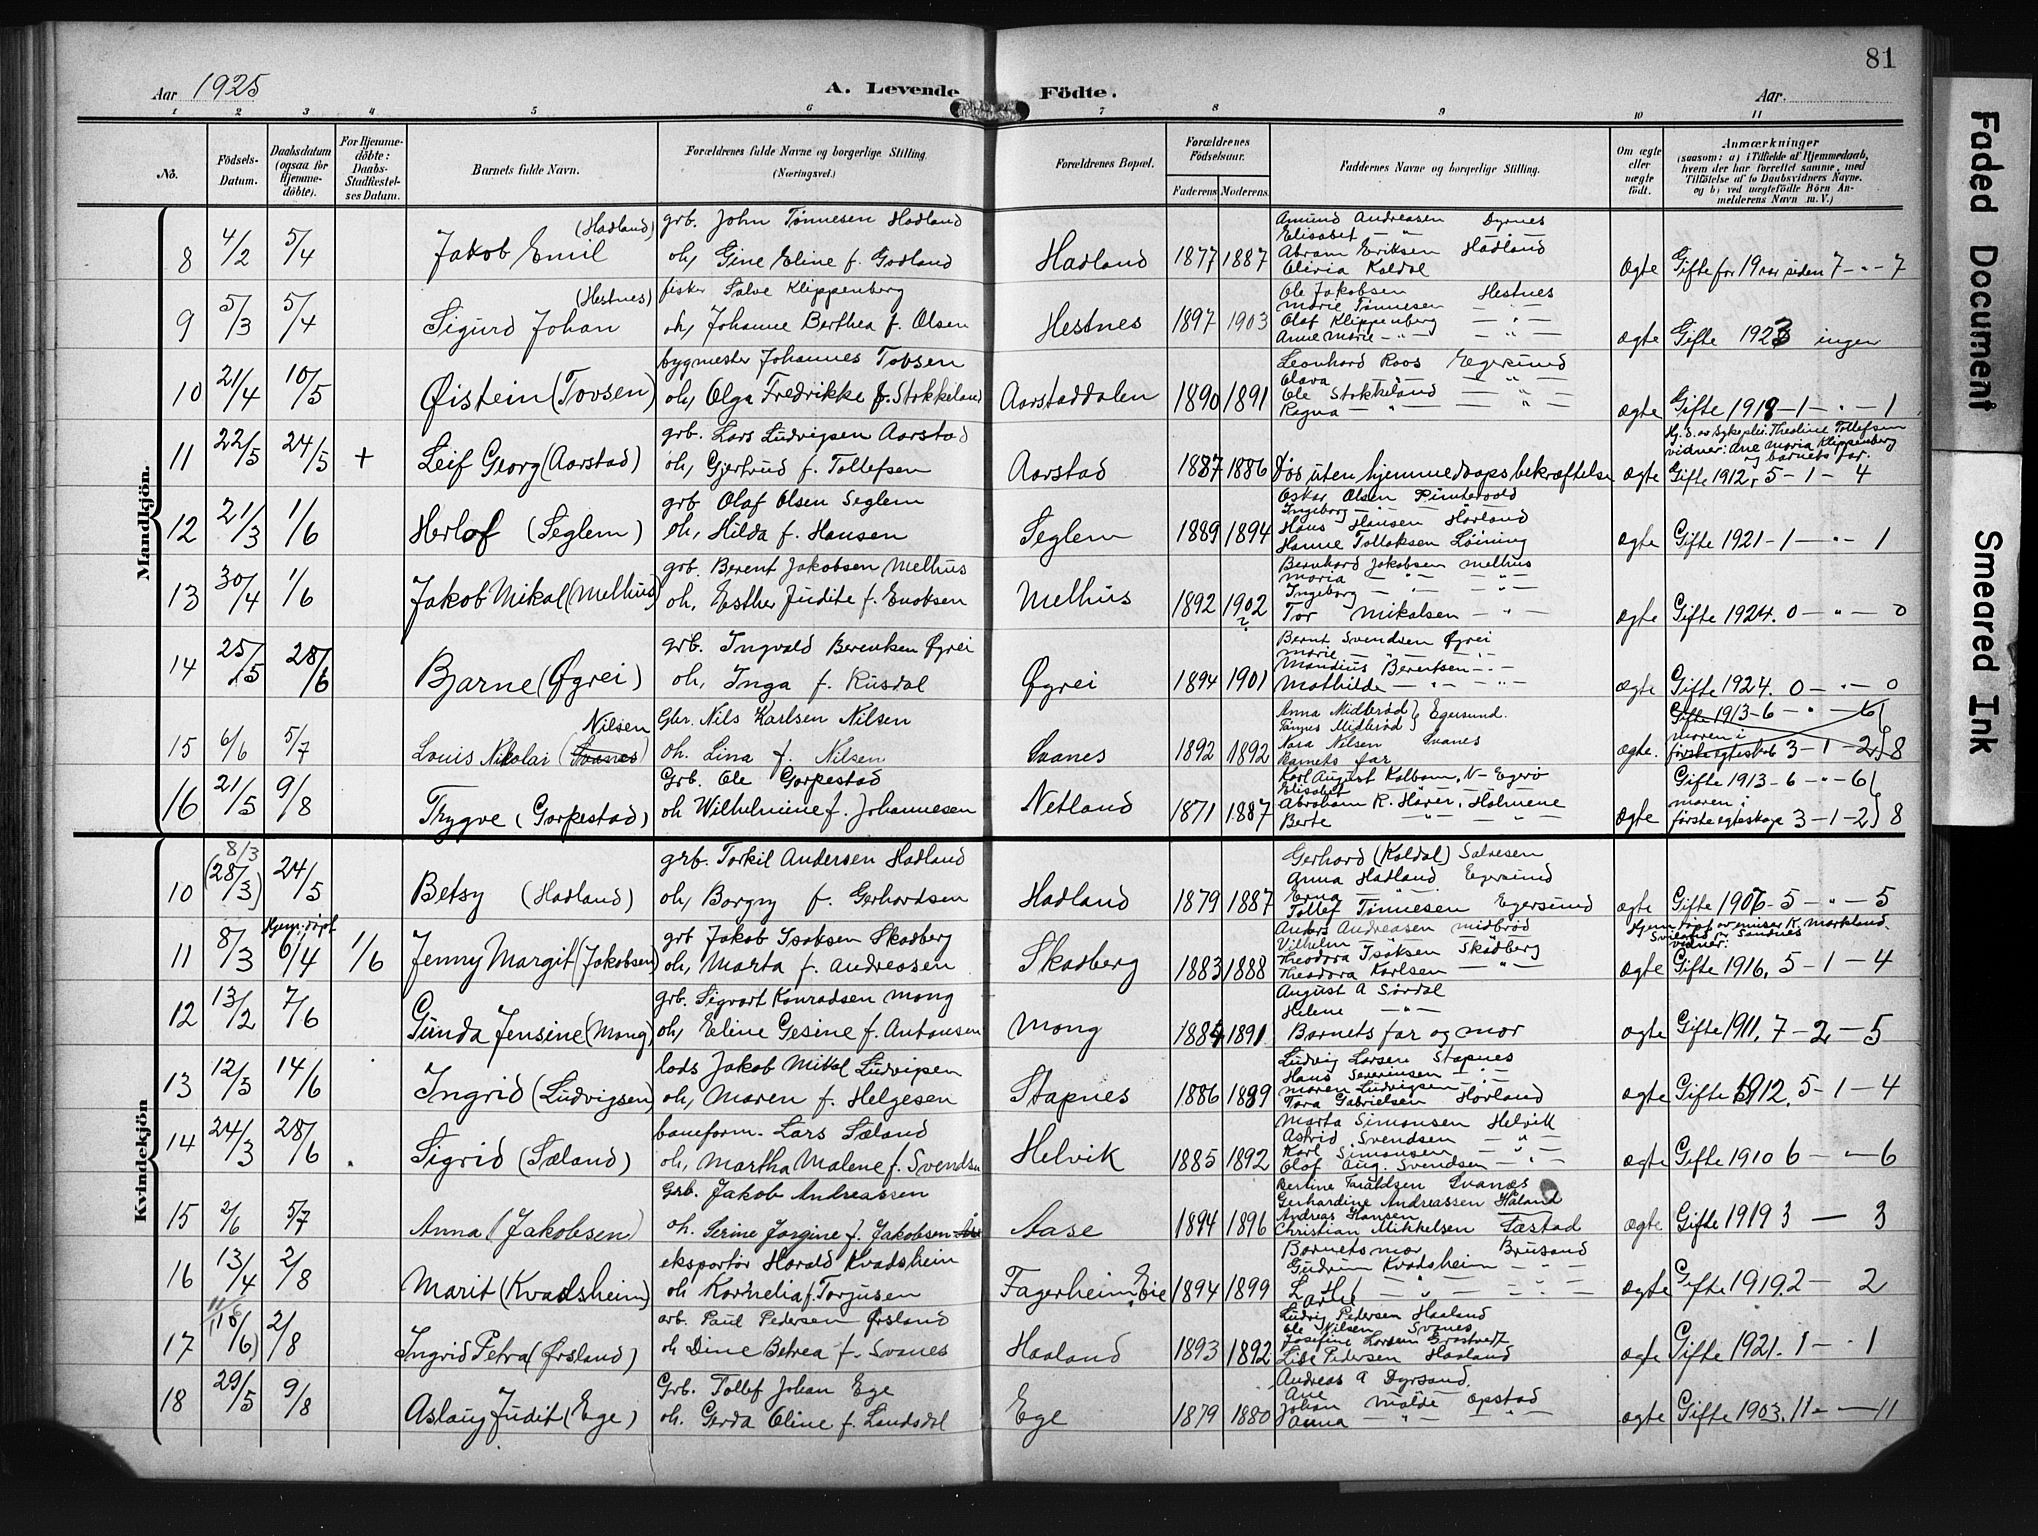 81
Aar 1925
A. Levende Födte.
Aar.
1 2 3 4 5 6 7 8 9 10 11
No.
Födsels-Datum.
Daabsdatum (ogsaa for Hjemme-döbte).
For Hjemme-döbte: Daabs-Stadfæstel-ses Datum.
Barnets fulde Navn.
Forældrenes fulde Navne og borgerlige Stilling. (Næringsvei.)
Forældrenes Bopæl.
Forældrenes Födselsaar.
Faderens. Moderens.
Faddernes Navne og borgerlige Stilling.
Om ægte eller uægte födt.
Anmærkninger
(saasom: a) i Tilfælde af Hjemmedaab, hvem der har forrettet samme, med Tilföielse af to Daabsvidners Navne. og b) ved uægtefödte Börn An-melderens Navn m. V.)
Mandkjön.
8 4/2 5/4 Jakob Emil (Hadland)
grb. John Tønnesen Hadland
oh, Gine Eline f. Godland
Hadland 1877 1887
Amund Andreasen Dyrnes
Elisabet — " —
Abram Eriksen Hadland
Oliria Koldal
ægte Gifte for 19 aar siden 7 - " - 7
9 5/3 5/4 Sigurd Johan (Hestnes)
fisker Salve Klippenberg
oh, Johanne Berthea f. Olsen
Hestnes 1897 1903
Ole Jakobsen Hestnes
Marie Tønnesen — " —
Olaf Klippenberg — " —
Anne Marie — " — — " —
ægte Gifte 1923 ingen
10 21/4 10/5 Øistein (Tovsen)
bygmester Johannes Tovsen
oh, Olga Fredrikke f. Stokkeland
Aarstaddalen 1890 1891
Leonhard Roos Egersund
Olava — " — — " —
Ole Stokkeland — " —
Ragna — " — — " —
ægte Gifte 1918 - 1 - " - 1
11 22/5 24/5 + Leif Georg (Aarstad)
grb. Lars Ludvigsen Aarstad
oh, Gjertrud f. Tollefsen
Aarstad 1887 1886 Død uten hjemmedaapsbekræftelse
ægte Hj. d. av Sykeplei. Theoline Tollefsen
vidner: Ane Maria Klippenberg
og barnets far.
Gifte 1912, 5 - 1 - 4
12 21/3 1/6 Herlof (Seglem)
grb Olaf Olsen Seglem
oh, Hilda f. Hansen
Seglem 1889 1894
Oskar Olsen
Ingeborg — " —
Hans Hansen Hovland
Hanne Tollaksen Løining
ægte Gifte 1921 - 1 - " - 1
13 30/4 1/6 Jakob Mikal (Melhus)
grb. Berent Jakobsen Melhus
oh, Esther Judite f. Enoksen
Melhus 1892 1902 ?
Bernhard Jakobsen Melhus
Maria — " — — " —
Ingeborg — " — — " —
Tor Mikalsen — " —
ægte Gifte 1924. 0 - " - 0
14 25/5 28/6 Bjarne (Øgrei)
grb. Ingvald Berentsen Øgrei
oh, Inga f. Rusdal
Øgrei 1894 1901
Bernt Svendsen Øgrei
Marie — " — — " —
Mandius Berentsen — " —
Mathilde — " — — " —
ægte Gifte 1924. 0 - " - 0
15 6/6 5/7 Louis Nikolai (Svanes) Nilsen
Gbr. Nils Karlsen Nilsen
oh. Lina f. Nilsen
Svanes 1892 1892
Anna Midbrød } Egersund.
Tønnes Midbrød
Nora Nilsen Svanes
Barnets far
ægte. Gifte 1913 - 6 - " - 6
moren i
første egteskab 3 - 1 - 2 } 8
16 21/5 9/8 Trygve (Gorpestad)
Grb. Ole Gorpestad
oh Wilhelmine f. Johannesen
Netland 1871 1887
Karl August Kolbam, N-Egerø
Elisabet — " —
Abraham K. Hører, Holmene
Berte — " — — " —
ægte Gifte 1913 - 6 - " - 6
moren i
første egteskap 3 - 1 - 2 } 8
Kvindekjön
10 8/3 (28/3) 24/5 Betsy (Hadland)
grb. Torkil Andersen Hadland
oh, Borgny f. Gerhardsen
Hadland 1879 1887
Gerhard (Koldal) Salvesen
Anna Hadland Egersund
Erna — " —
Tollef Tønnesen Egersund
ægte Gifte 1906 - 5 - " - 5
11 8/3 Hjem. døpt 6/4 1/6 Jenny Margit (Jakobsen)
grb Jakob Isaksen Skadberg
oh, Marta f. Andreasen
Skadberg 1883 1888
Anders Andreasen Midbrød
Vilhelm — " —
Theodora Isaksen Skadberg
Theodora Karlsen — " —
ægte Hjem døpt av emisær K. Markland
vidner:
Gifte 1916, 5 - 1 - 4
12 13/2 7/6 Gunda Jensine (Mong)
grb. Sigvart Konradsen Mong
oh, Eline Gesine f. Antonsen
Mong 1884 1891
August A Sørdal
Helene — " —
Barnets far og mor
ægte Gifte 1911, 7 - 2 - 5
13 12/5 14/6 Ingrid (Ludvigsen)
lods Jakob Mikal Ludvigsen
oh, Maren f. Helgesen
Stapnes 1886 1889
Ludvig Larsen Stapnes
Hans Severinsen — " —
Maren Ludvigsen — " —
Tora Gabrielsen Hovland
ægte Gifte 1912, 5 - 1 - 4
14 24/3 28/6 Sigrid (Sæland)
baneform. Lars Sæland
oh, Martha Malene f. Svendsen
Helvik 1885 1892
Marta Simonsen Helvik
Astrid Svendsen — " —
Karl Simonsen — " —
Olaf Aug. Svendsen — " —
ægte Gifte 1910 6 - " - 6
15 2/6 5/7 Anna (Jakobsen)
Grb. Jakob Andreassen
oh. Serine Jorgine f. Jakobsen
Aase 1894 1896
Bertine Taraldsen Svanæs
Gerhardine Andreassen Håland
Andreas Hansen
Christian Mikkelsen Sæstad
ægte Gifte 1919 3 — 3
16 13/4 2/8 Marit (Kvadsheim)
eksportør Harald Kvadsheim
oh Kornelia f. Torjusen
Fagerheim, Eie 1894 1899
Barnets mor Brusand
Gudrun Kvadsheim — " —
ægte Gifte 1919. 2 — 2
17 11/6 2/8 Ingrid Petra (Ørsland)
arb. Paul Pedersen Ørsland
oh Dine Betrea f. Svanes
Haaland 1893 1892
Ludvig Pedersen Haaland
Ole Nilsen Svanes
Josefine Larsen
Lise Pedersen Haaland
ægte Gifte 1921. 1 - " 1
18 29/5 9/8 Aslaug Judit (Ege)
Grb. Tollef Johan Ege
oh. Gerda Oline f. Landsdal
Ege 1879 1880
Andreas A Dyrsand
Ane
Johan Malde Opstad
Anna — " — — " —
ægte Gifte 1903. 11 - — 11
Faded Document
Smeared Ink